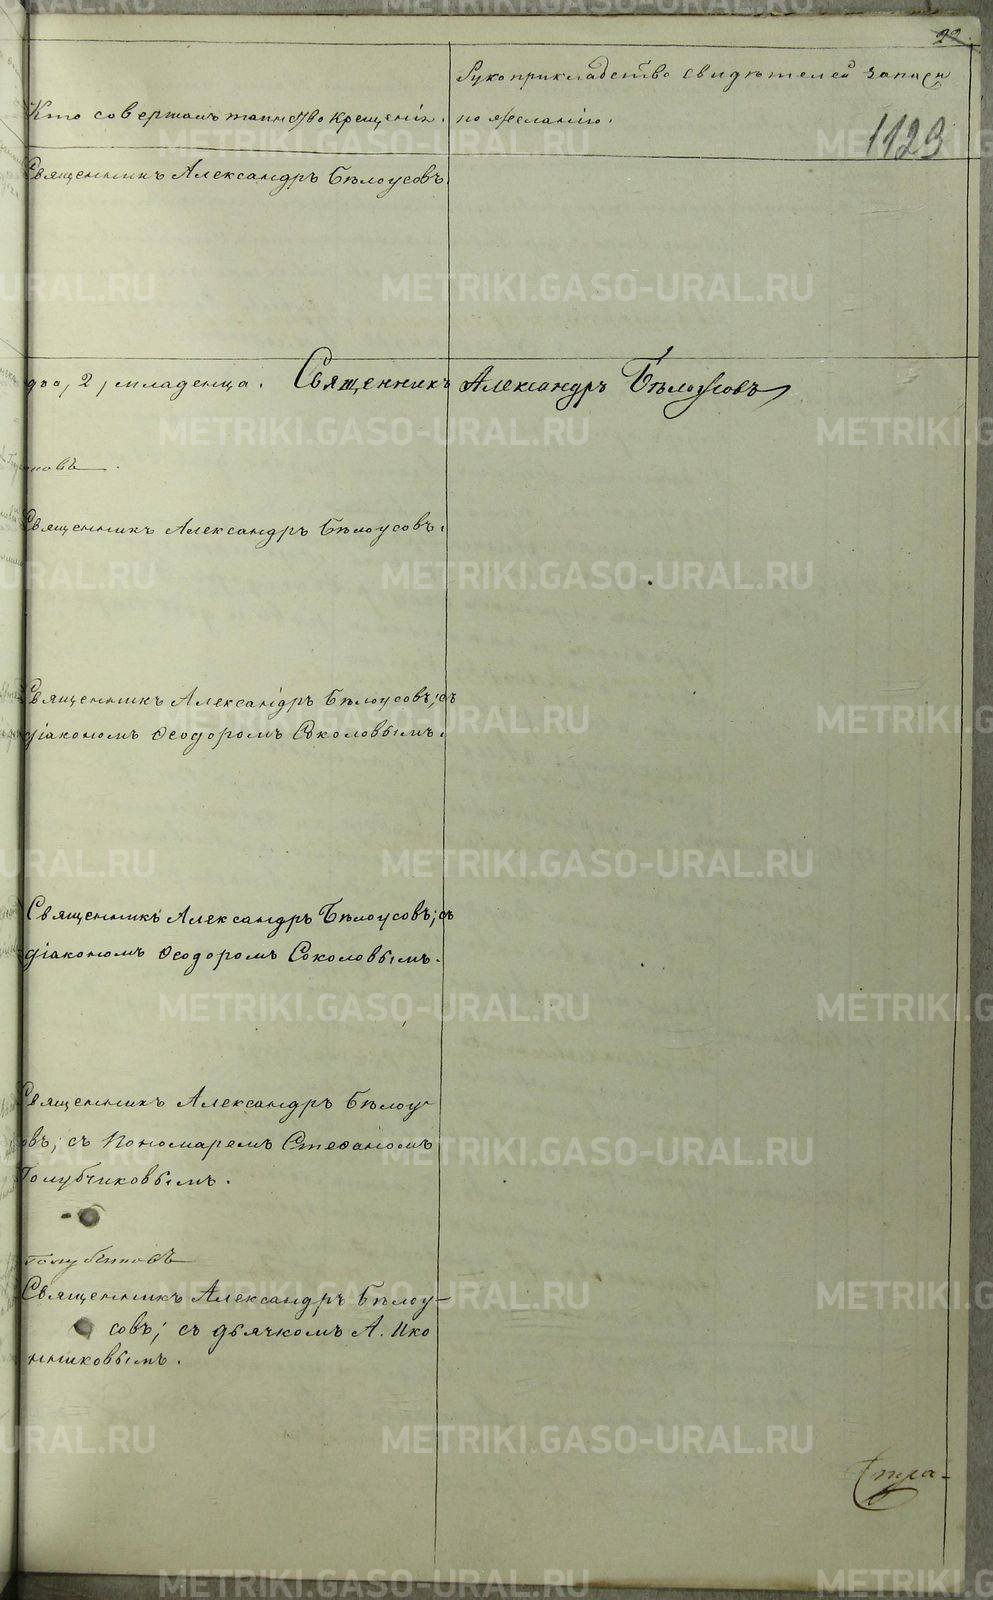 22
Рукоприкладство свидѣтелей записи
Кто совершалъ таинство крещенія. по желанію.
1123
Священникъ Александръ Бѣлоусовъ.
два, 2, младенца. Священникъ Александръ Бѣлоусовъ
новъ
Священникъ Александръ Бѣлоусовъ.
Священникъ Александръ Бѣлоусовъ; съ
діакономъ Ѳеодоромъ Соколовымъ.
Священникъ Александръ Бѣлоусовъ; съ
діакономъ Ѳеодоромъ Соколовымъ.
Священникъ Александръ Бѣлоу-
совъ; съ Пономаремъ Стефаномъ
Голубчиковымъ.
Священникъ Александръ Бѣлоу-
совъ; съ дьячкомъ А. Ико
нниковымъ.
Стра-
METRIKI.GASO-URAL.RU